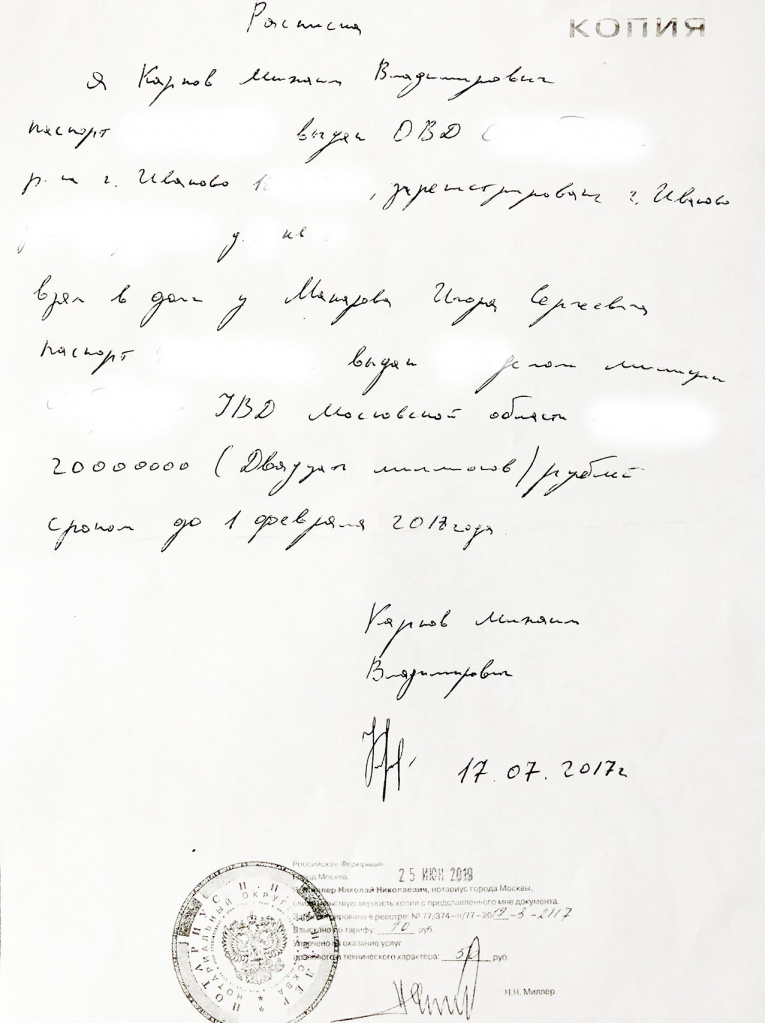 Расписка
КОПИЯ
Я Карпов Михаил Владимирович
паспорт выдан ОВД
р-на г. Иваново зарегистрирован г. Иваново
д. кв
взял в долг у Макарова Игоря Сергеевича
паспорт выдан милиции
УВД Московской области
20000000 (Двадцать миллионов) рублей
сроком до 1 февраля 2018 года
Карпов Михаил
Владимирович
17.07.2017г
Российская Федерация
Город Москва
25 ИЮН 2019
Миллер Николай Николаевич, нотариус города Москвы,
свидетельствую верность копии с представленного мне документа.
Зарегистрировано в реестре: № 77/374-н/77-2019-3-2117
Взыскано по тарифу: 10 руб.
Уплачено за оказание услуг
правового и технического характера: 50 руб.
Н.Н. Миллер
НОТАРИУС Н.Н. МИЛЛЕР
НОТАРИАЛЬНЫЙ ОКРУГ МОСКВА